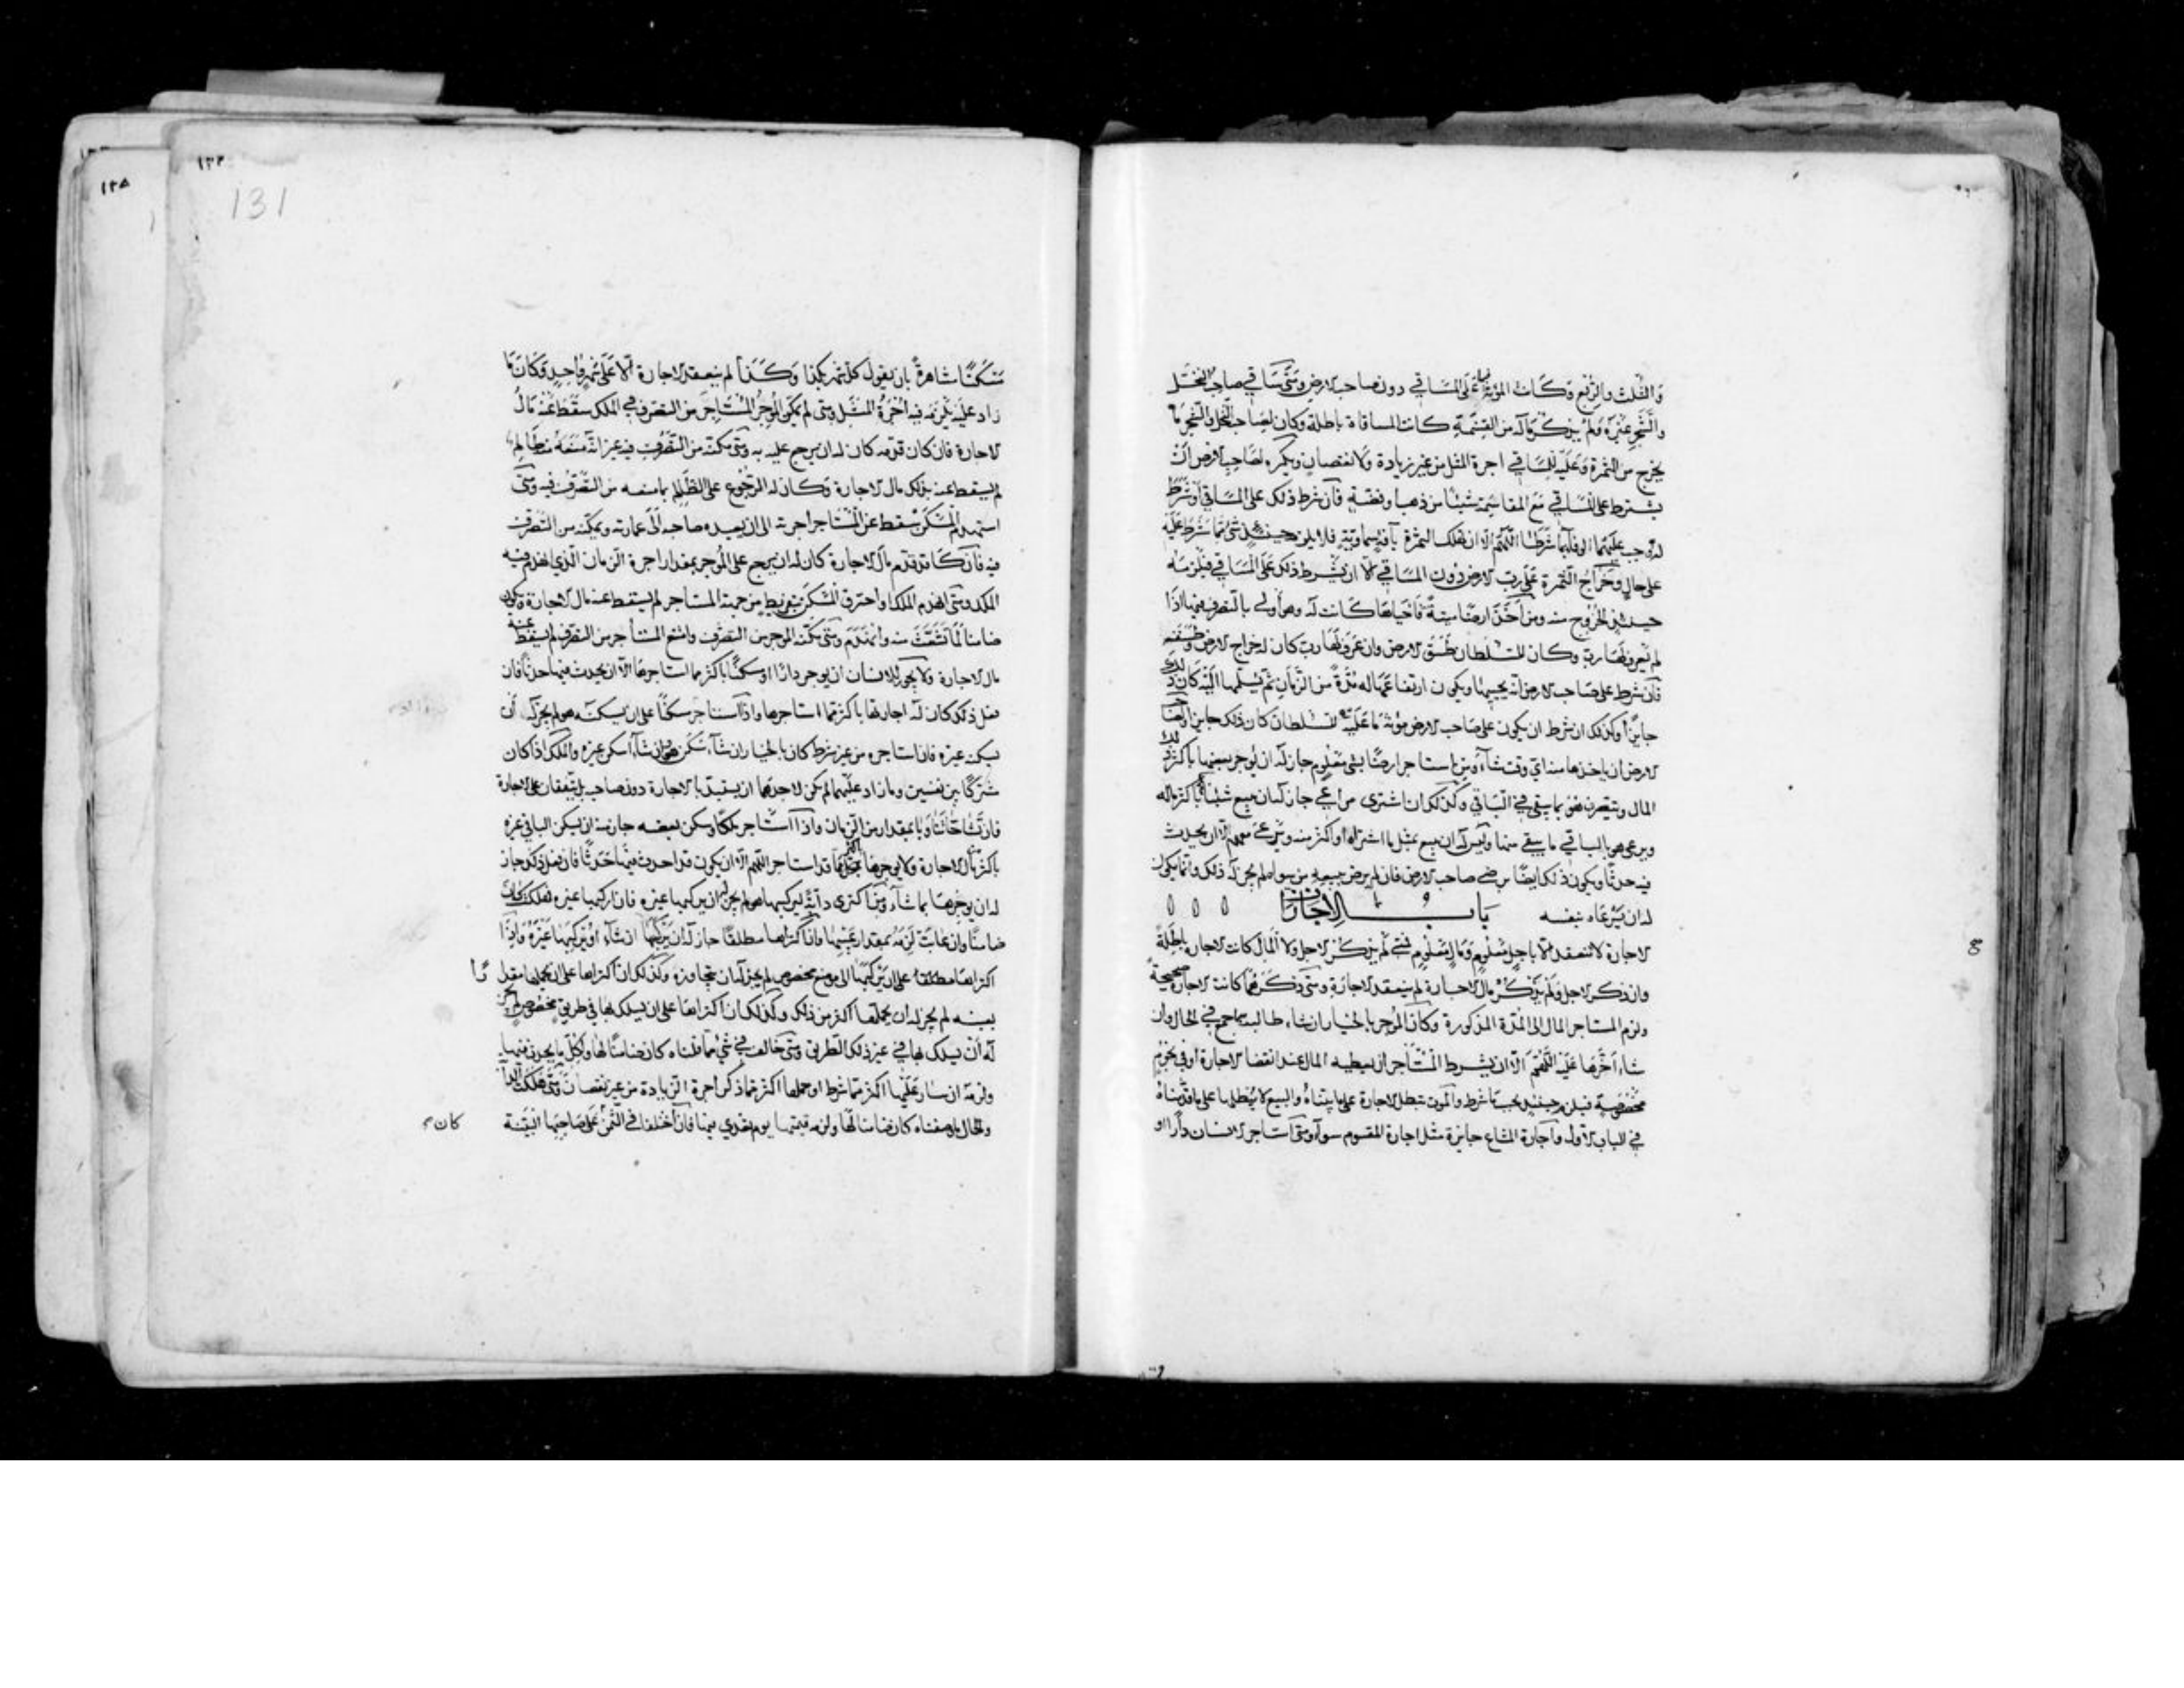 والثلث والربع وكانت المؤنة على المساقي دون صاحب الارض ومتى ساقي صاحب النخل
والشجر غيره ولم يذكر ماله من القسمة كانت المساقاة باطلة وكان لصاحب النخل والشجر ما
يخرج من الثمرة وعليه للساقي اجرة المثل من غير زيادة ولا نقصان ويكره لصاحب الارض ان
يشترط على المساقي مع المقاسمة شيئا من ذهب او فضة فان شرط ذلك على المساقي او شرط
له وجب عليهما الوفاء بما شرطا اللهم الا ان تهلك الثمرة بآفة سماوية فلا يلزم حينئذ شئ مما شرط عليه
على حال وخراج الثمرة على رب الارض دون المساقي الا ان يشرط ذلك على المساقي فيلزمه
حينئذ الخروج منه ومن اخذ ارضا ميتة فاحياها كانت له وهو اولى بالتصرف فيها اذا
لم يعرف لها رب وكان للسلطان طسق الارض وان عرف لها رب كان له خراج الارض وطسقه
فان شرط على صاحب الارض انه يحييها ويكون ارتفاعها له مدة من الزمان ثم يسلمها اليه كان ذلك
جايزا وكذلك ان شرط ان يكون على صاحب الارض مؤنة ما عليه للسلطان كان ذلك جايزا ولصاحب
الارض ان ياخذها منه اي وقت شاء ومن استاجر ارضا بشئ معلوم جاز له ان يوجر بعضها باكثر ذلك
المال ويتصرف هو بما يبقى في الباقي وكذلك ان اشترى مراعي جاز له ان يبيع شيئا باكثر ماله
ويرعى هو بالباقي ما يبقى منها وليس له ان يبيع بمثل ما اشتراه او اكثر منه ويرعى معهم الا ان يحدث
فيه حدثا ويكون ذلك ايضا برضى صاحب الارض فان لم يرض ببيعه من سواه لم يجز له ذلك وانما يكون
له ان يرعاه بنفسه باب الاجارات
الاجارة لا تنعقد الا باجل معلوم ومال معلوم فمتى لم يذكر الاجل ولا المال كانت الاجارة باطلة
وان ذكر الاجل ولم يذكر مال الاجارة لم ينعقد الاجارة ومتى ذكرهما كانت الاجارة صحيحة
ولزم المستاجر المال الى المدة المذكورة وكان الموجر بالخيار ان شاء طالبه بها اجمع في الحال وان
شاء اخرها عليه اللهم الا ان يشرط المستاجر ان يعطيه المال عند انقضا الاجارة او في نجوم
مخصوصة فيلزم حينئذ بحسب ما شرط والموت يبطل الاجارة على ما بيناه والبيع لا يبطلها على ما قدمناه
في الباب الاول واجارة المشاع جايزة مثل اجارة المقسوم سواء ومتى استاجر الانسان دارا او
١٣٨
١٣٢
131
مسكنا مشاهرة بان يقول كل شهر بكذا وكذا لم ينعقد الاجارة الا على شهر واحد وكان ما
زاد عليه يلزمه فيه اجرة المثل ومتى لم يمكن الموجر المستاجر من التصرف في الملك سقط عنه مال
الاجارة فان كان قدمه كان له ان يرجع عليه به ومتى مكنه من التصرف فيه غير انه منعه منه ظالم
لم يسقط عنه بذلك مال الاجارة وكان له الرجوع على الظالم بما منعه من التصرف فيه ومتى
استهدم المسكن سقط عن المستاجر اجرته الى ان يعيده صاحبه الى عمارته ويمكنه من التصرف
فيه فان كان قد قدم مال الاجارة كان له ان يرجع على الموجر بمقدار اجرة الزمان الذي انهدم فيه
الملك ومتى انهدم الملك او احترق المسكن بتفريط من جهة المستاجر لم يسقط عنه مال الاجارة ويكون
ضامنا لما تشعث منه وانهدم ومتى مكنه الموجر من التصرف وامتنع المستأجر من التصرف لم يسقط عنه
مال الاجارة ولا يجوز للانسان ان يوجر دارا او مسكنا باكثر مما استاجرها الا ان يحدث فيها حدثا فان
فعل ذلك كان له اجارتها باكثر مما استاجرها واذا استاجر مسكنا على ان يسكنه هو لم يجز له ان
يسكنه غيره فان استاجره من غير شرط كان بالخيار ان شاء سكن هو وان شاء اسكن غيره والملك اذا كان
شركا بين نفسين وما زاد عليهما لم يكن لاحدهما ان يستبد بالاجارة دون صاحبه بل يتفقان على الاجارة
فان تشاحا تناوبا بمقدار من الزمان واذا استاجر ملكا وسكن بعضه جاز له ان يسكن الباقي غيره
باكثر مال الاجارة ولا يوجرها بمثل ما قد استاجر اللهم الا ان يكون قد احدث فيها حدثا فان فعل ذلك جاز
له ان يوجرها بما شاء ومن اكترى دابة ليركبها هو لم يجز له ان يركبها غيره فان اركبها غيره فهلكت كان
ضامنا وان عابت لزمه بمقدار عيبها وان اكتراها مطلقا جاز له ان يركبها ان شاء او يركبها غيره واذا
اكتراها مطلقا على ان يركبها الى موضع مخصوص لم يجز له ان يتجاوزه وكذلك ان اكتراها على ان يحملها مقدارا
بعينه لم يجز له ان يحملها اكثر من ذلك وكذلك ان اكتراها على ان يسلك بها في طريق مخصوص لم يجز
له ان يسلك بها في غير ذلك الطريق ومتى خالف في شئ مما قلناه كان ضامنا لها ولكل ما يحدث فيها
ولزمه ان سار عليها اكثر مما شرط او حملها اكثر مما ذكر اجرة الزيادة من غير نقصان ومتى هلكت الدابة
والحال ما وصفناه كان ضامنا لها ولزمه قيمتها يوم تعدى فيها فان اختلفا في الثمن على صاحبها البينة
كان